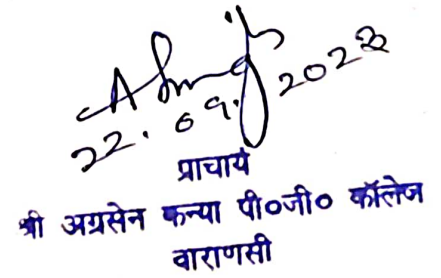 22.09.2023
प्राचार्य
श्री अग्रसेन कन्या पी०जी० कॉलेज
वाराणसी